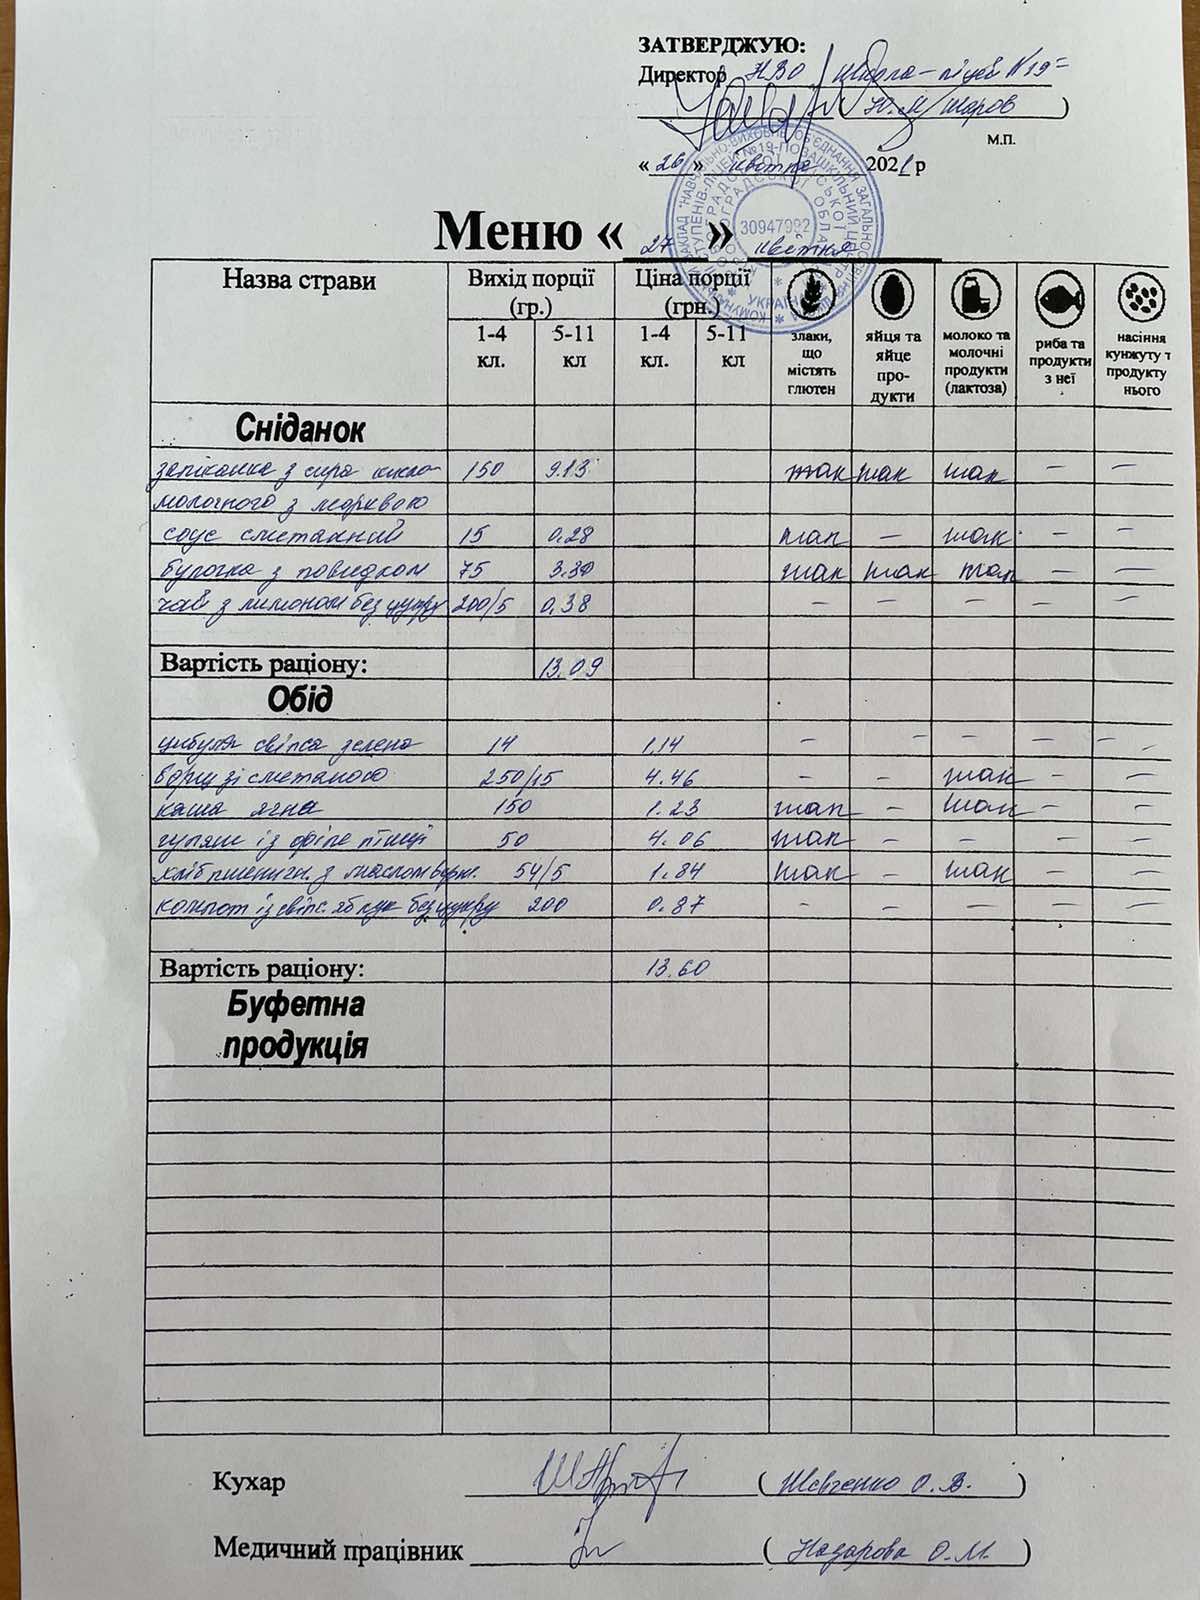 ЗАТВЕРДЖУЮ:
Директор НВО школа-ліцей №19
( Ю.М. Жаров )
М.П.
« 26 » квітня 2021 р
30947992
УКРАЇНА
Меню « 27 » квітня
Назва страви Вихід порції (гр.) Ціна порції (грн.)
1-4 кл. 5-11 кл 1-4 кл. 5-11 кл злаки, що містять глютен яйця та яйце про- дукти молоко та молочні продукти (лактоза) риба та продукти з неї насіння кунжуту т продукту нього
Сніданок
запіканка з сира кисло- 150 9.13 так так так – –
молочного з морквою
соус сметанний 15 0.28 так – так – –
булочка з повидлом 75 3.30 так так так – –
чай з лимоном без цукру 200/5 0.38 – – – – –
Вартість раціону: 13.09
Обід
цибуля свіжа зелена 14 1.14 – – – – –
борщ зі сметаною 250/15 4.46 – – так – –
каша ячна 150 1.23 так – так – –
гуляш із філе птиці 50 4.06 так – – – –
хліб пшеничн. з маслом верш. 54/5 1.84 так – так – –
компот із свіж. яблук без цукру 200 0.87 – – – – –
Вартість раціону: 13.60
Буфетна
продукція
Кухар ( Шевченко О.В. )
Медичний працівник ( Назарова О.М. )